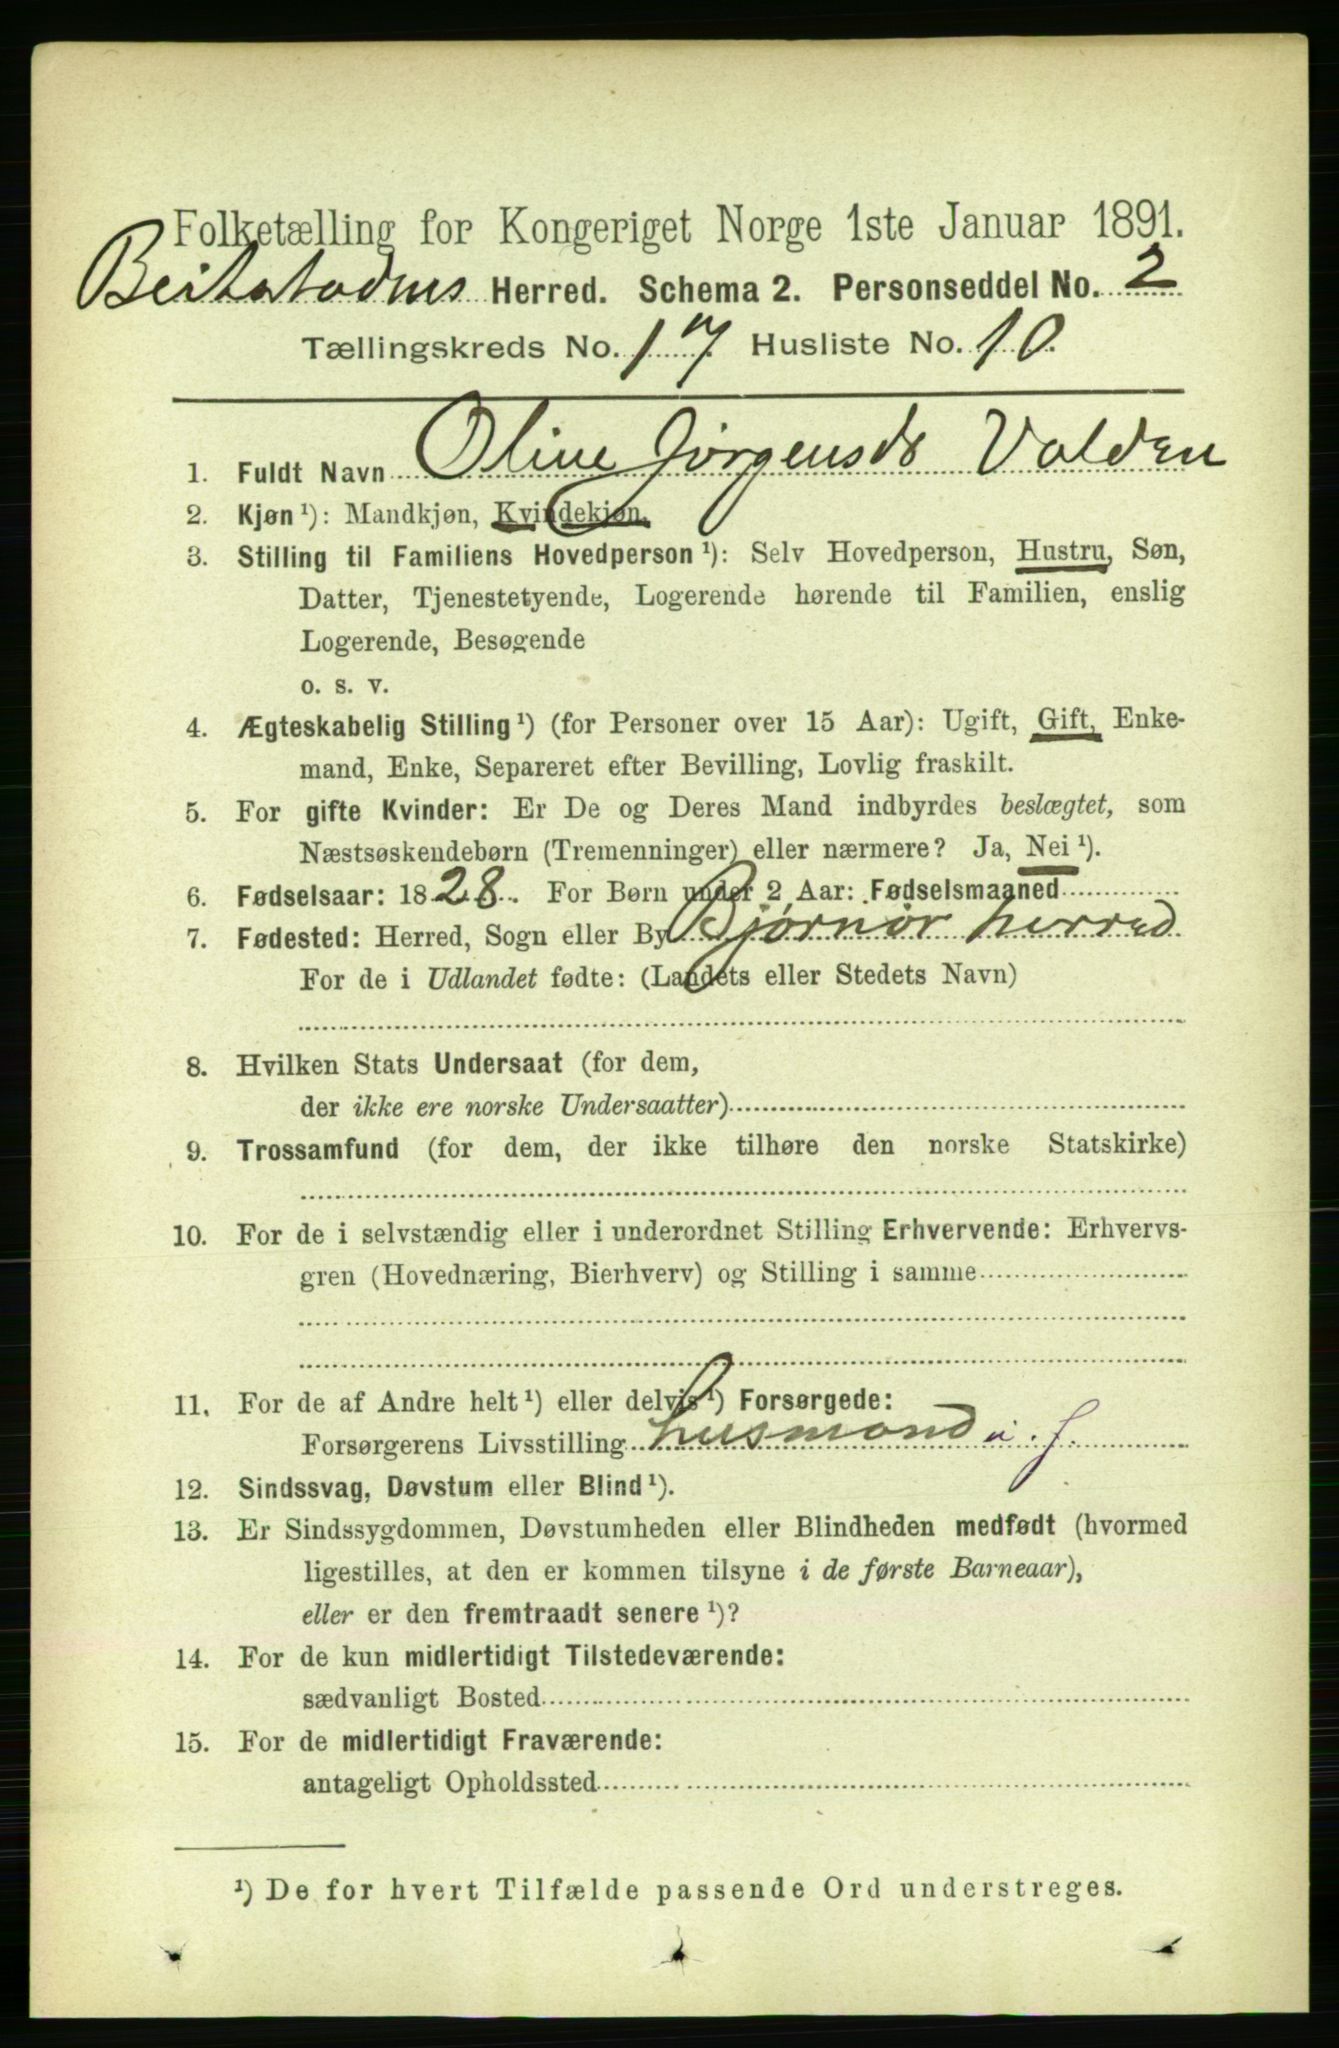 Folketælling for Kongeriget Norge 1ste Januar 1891.
Beitstadens Herred. Schema 2. Personseddel No. 2
Tællingskreds No. 17 Husliste No. 10.
1. Fuldt Navn Oline Jørgensdr Valden
2. Kjøn ¹): Mandkjøn, Kvindekjøn.
3. Stilling til Familiens Hovedperson ¹): Selv Hovedperson, Hustru, Søn,
Datter, Tjenestetyende, Logerende hørende til Familien, enslig
Logerende, Besøgende
o. s. v.
4. Ægteskabelig Stilling ¹) (for Personer over 15 Aar): Ugift, Gift, Enke-
mand, Enke, Separeret efter Bevilling, Lovlig fraskilt.
5. For gifte Kvinder: Er De og Deres Mand indbyrdes beslægtet, som
Næstsøskendebørn (Tremenninger) eller nærmere? Ja, Nei ¹).
6. Fødselsaar: 1828. For Børn under 2 Aar: Fødselsmaaned
7. Fødested: Herred, Sogn eller By Bjørnør herred
For de i Udlandet fødte: (Landets eller Stedets Navn)
8. Hvilken Stats Undersaat (for dem,
der ikke ere norske Undersaatter)
9. Trossamfund (for dem, der ikke tilhøre den norske Statskirke)
10. For de i selvstændig eller i underordnet Stilling Erhvervende: Erhvervs-
gren (Hovednæring, Bierhverv) og Stilling i samme
11. For de af Andre helt ¹) eller delvis ¹) Forsørgede:
Forsørgerens Livsstilling husmand u. f.
12. Sindssvag, Døvstum eller Blind ¹).
13. Er Sindssygdommen, Døvstumheden eller Blindheden medfødt (hvormed
ligestilles, at den er kommen tilsyne i de første Barneaar),
eller er den fremtraadt senere ¹)?
14. For de kun midlertidigt Tilstedeværende:
sædvanligt Bosted
15. For de midlertidigt Fraværende:
antageligt Opholdssted
¹) De for hvert Tilfælde passende Ord understreges.